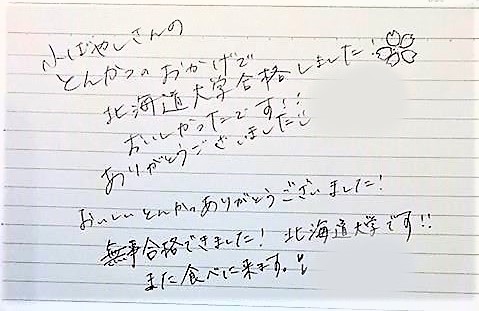 小ばやしさんの
とんかつのおかげで
北海道大学合格しました!
おいしかったです!!
ありがとうございました!
おいしいとんかつありがとうございました!
無事合格できました! 北海道大学です!!
また食べに来ます。!